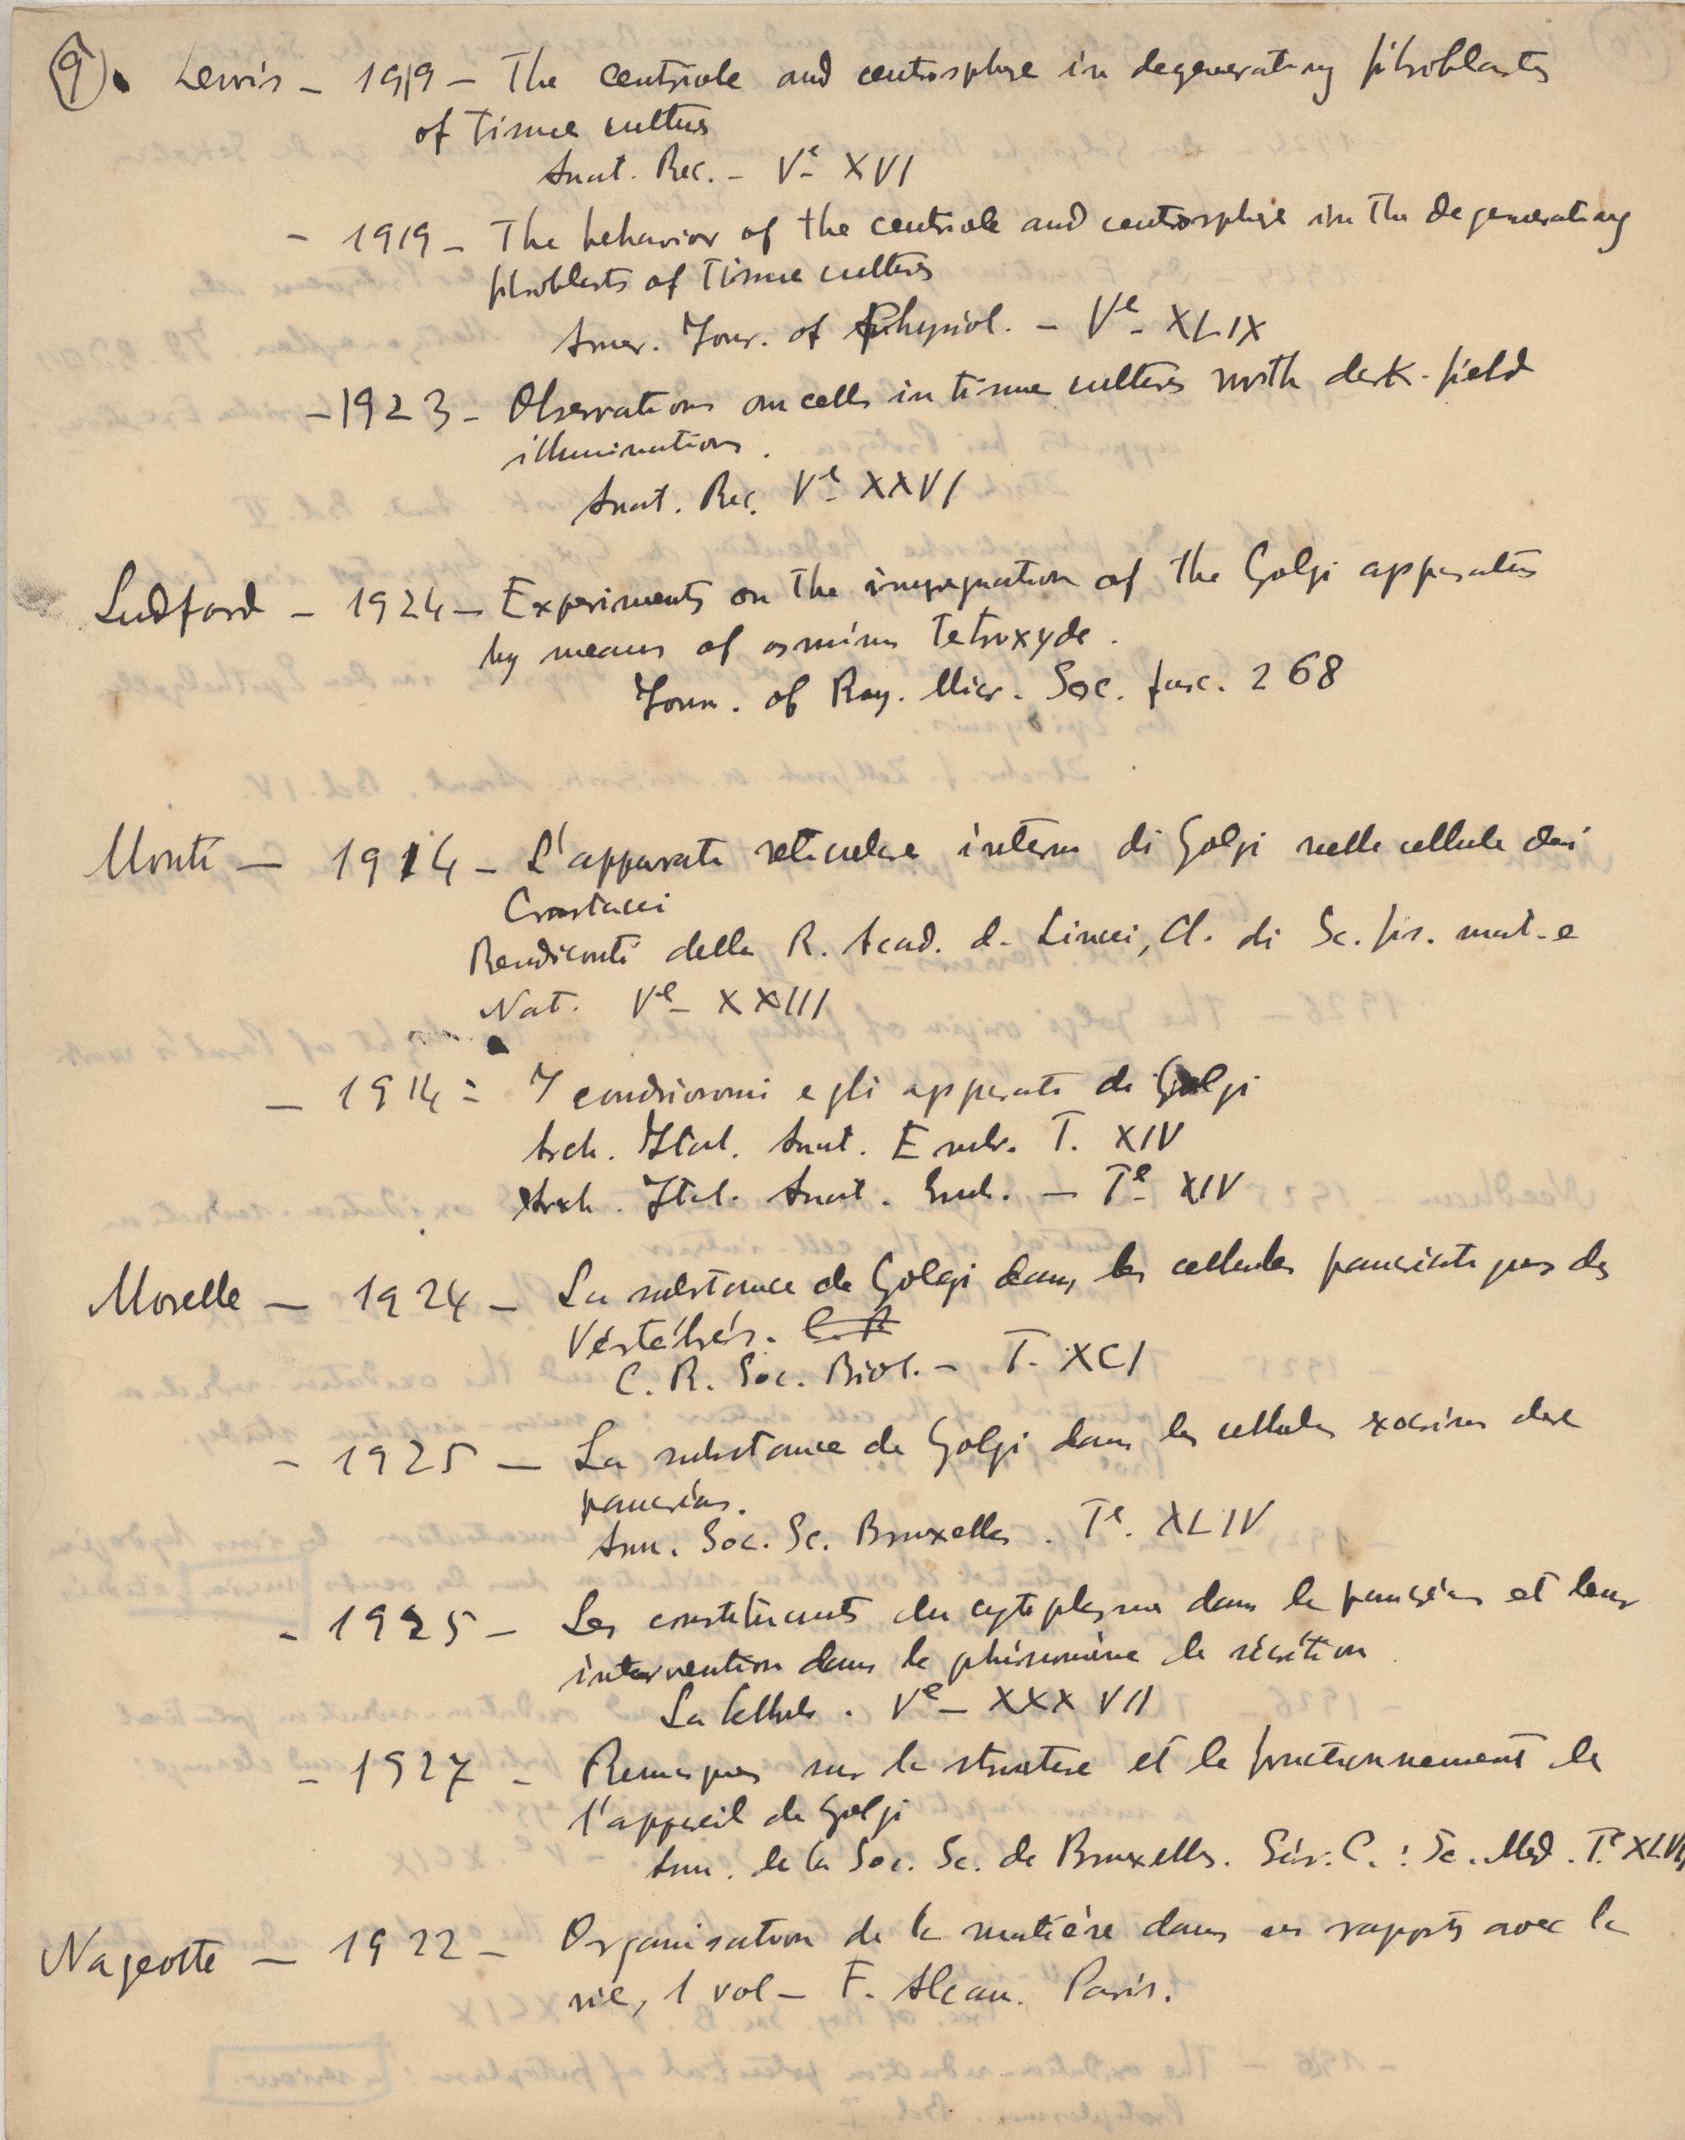 9. Lewis - 1919 - The centriole and centrosphere in degenerating fibroblasts
of Tissue cultures
Anat. Rec. - Vᵉ XVI
- 1919 - The behavior of the centriole and centrosphere in the degenerating
fibroblasts of Tissue cultures
Amer. Jour. of Physiol. - Vᵉ - XLIX
- 1923 - Observations on cells in tissue cultures with dark-field
illumination.
Anat. Rec. Vᵉ XXVI
Ludford - 1924 - Experiments on the impregnation of the Golgi apparatus
by means of osmium Tetroxyde.
Journ. of Roy. Micr. Soc. fasc. 268
Monti - 1914 - L'apparato reticolare interno di Golgi nelle cellule dei
Crostacei
Rendiconti della R. Acad. d. Lincei, Cl. di Sc. fis. mat. e
Nat. Vᵉ - XXIII
- 1914 = I condriosomi e gli apparati di Golgi
Arch. Ital. Anat. Embr. T. XIV
Arch. Ital. Anat. Emb. - Tᵉ XIV
Morelle - 1924 - La substance de Golgi dans les cellules pancréatiques des
Vértébrés.
C. R. Soc. Biol. - T. XCI
- 1925 - La substance de Golgi dans les cellules exocrines du
pancréas.
Ann. Soc. Sc. Bruxelles. Tᵉ. XLIV
- 1925 - Les constituants du cytoplasma dans le pancréas et leur
intervention dans le phénomène de sécrétion
La Cellule. Vᵉ - XXXVII
- 1927 - Remarques sur la structure et le fonctionnement de
l'appareil de Golgi
Ann. de la Soc. Sc. de Bruxelles. Sér. C. : Sc. Med. Tᵉ
Nageotte - 1922 - Organisation de la matière dans ses rapports avec la
vie, 1 vol - F. Alcan. Paris.